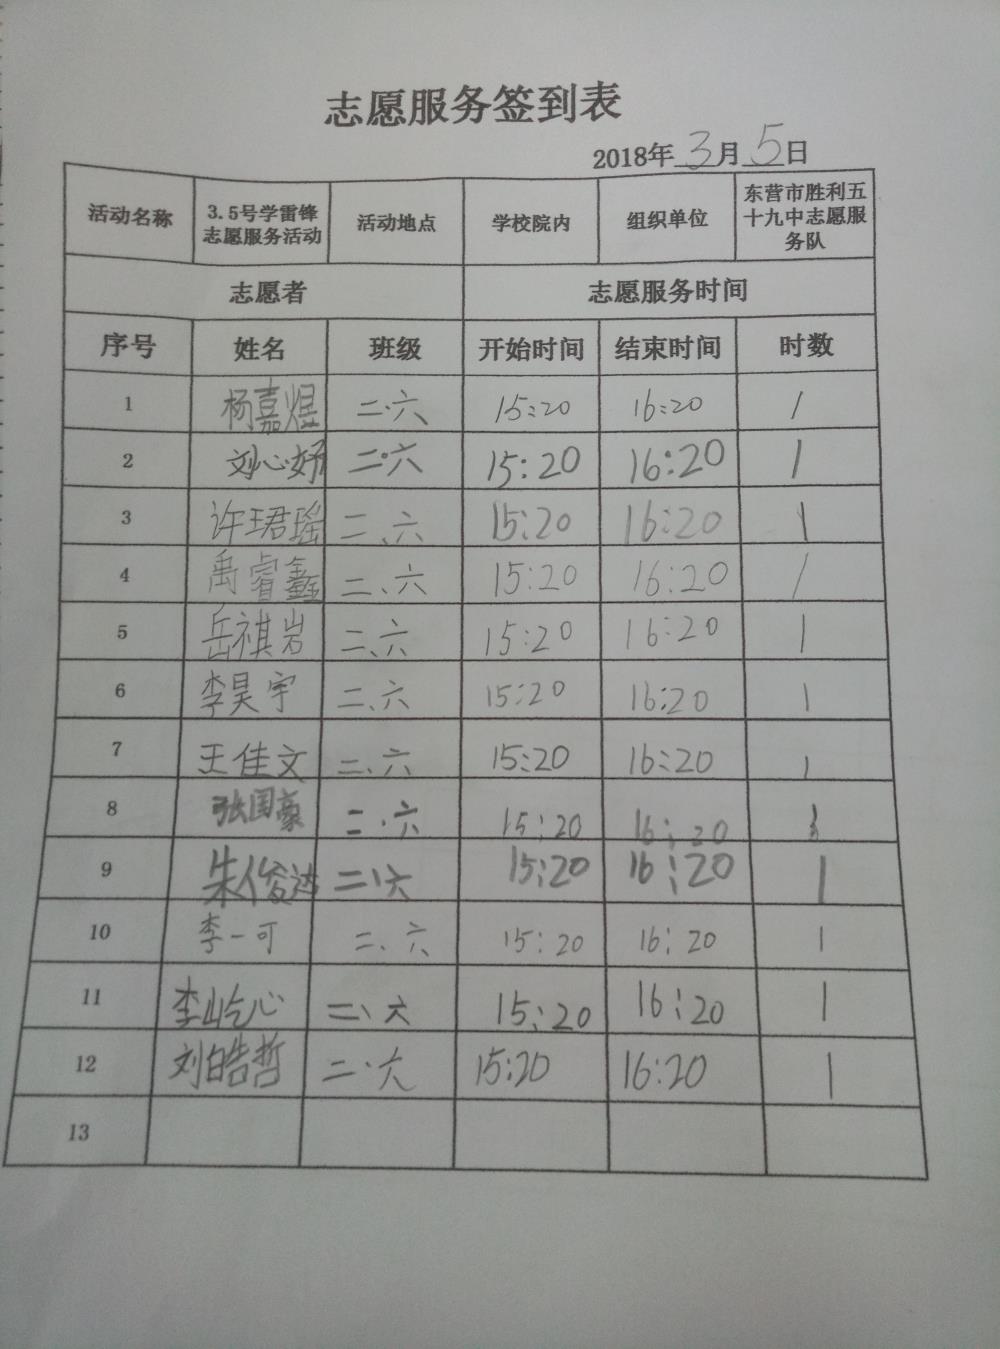 志愿服务签到表
2018年 3 月 5 日
活动名称 3.5号学雷锋志愿服务活动 活动地点 学校院内 组织单位 东营市胜利五十九中志愿服务队
志愿者 志愿服务时间
序号 姓名 班级 开始时间 结束时间 时数
1 杨嘉煜 二.六 15:20 16:20 1
2 刘心妤 二.六 15:20 16:20 1
3 许珺瑶 二、六 15:20 16:20 1
4 禹睿鑫 二、六 15:20 16:20 1
5 岳祺岩 二、六 15:20 16:20 1
6 李昊宇 二、六 15:20 16:20 1
7 王佳文 二、六 15:20 16:20 1
8 张国豪 二.六 15:20 16:20 1
9 朱俊达 二、六 15:20 16:20 1
10 李一可 二、六 15:20 16:20 1
11 李屹心 二、六 15:20 16:20 1
12 刘皓哲 二.六 15:20 16:20 1
13